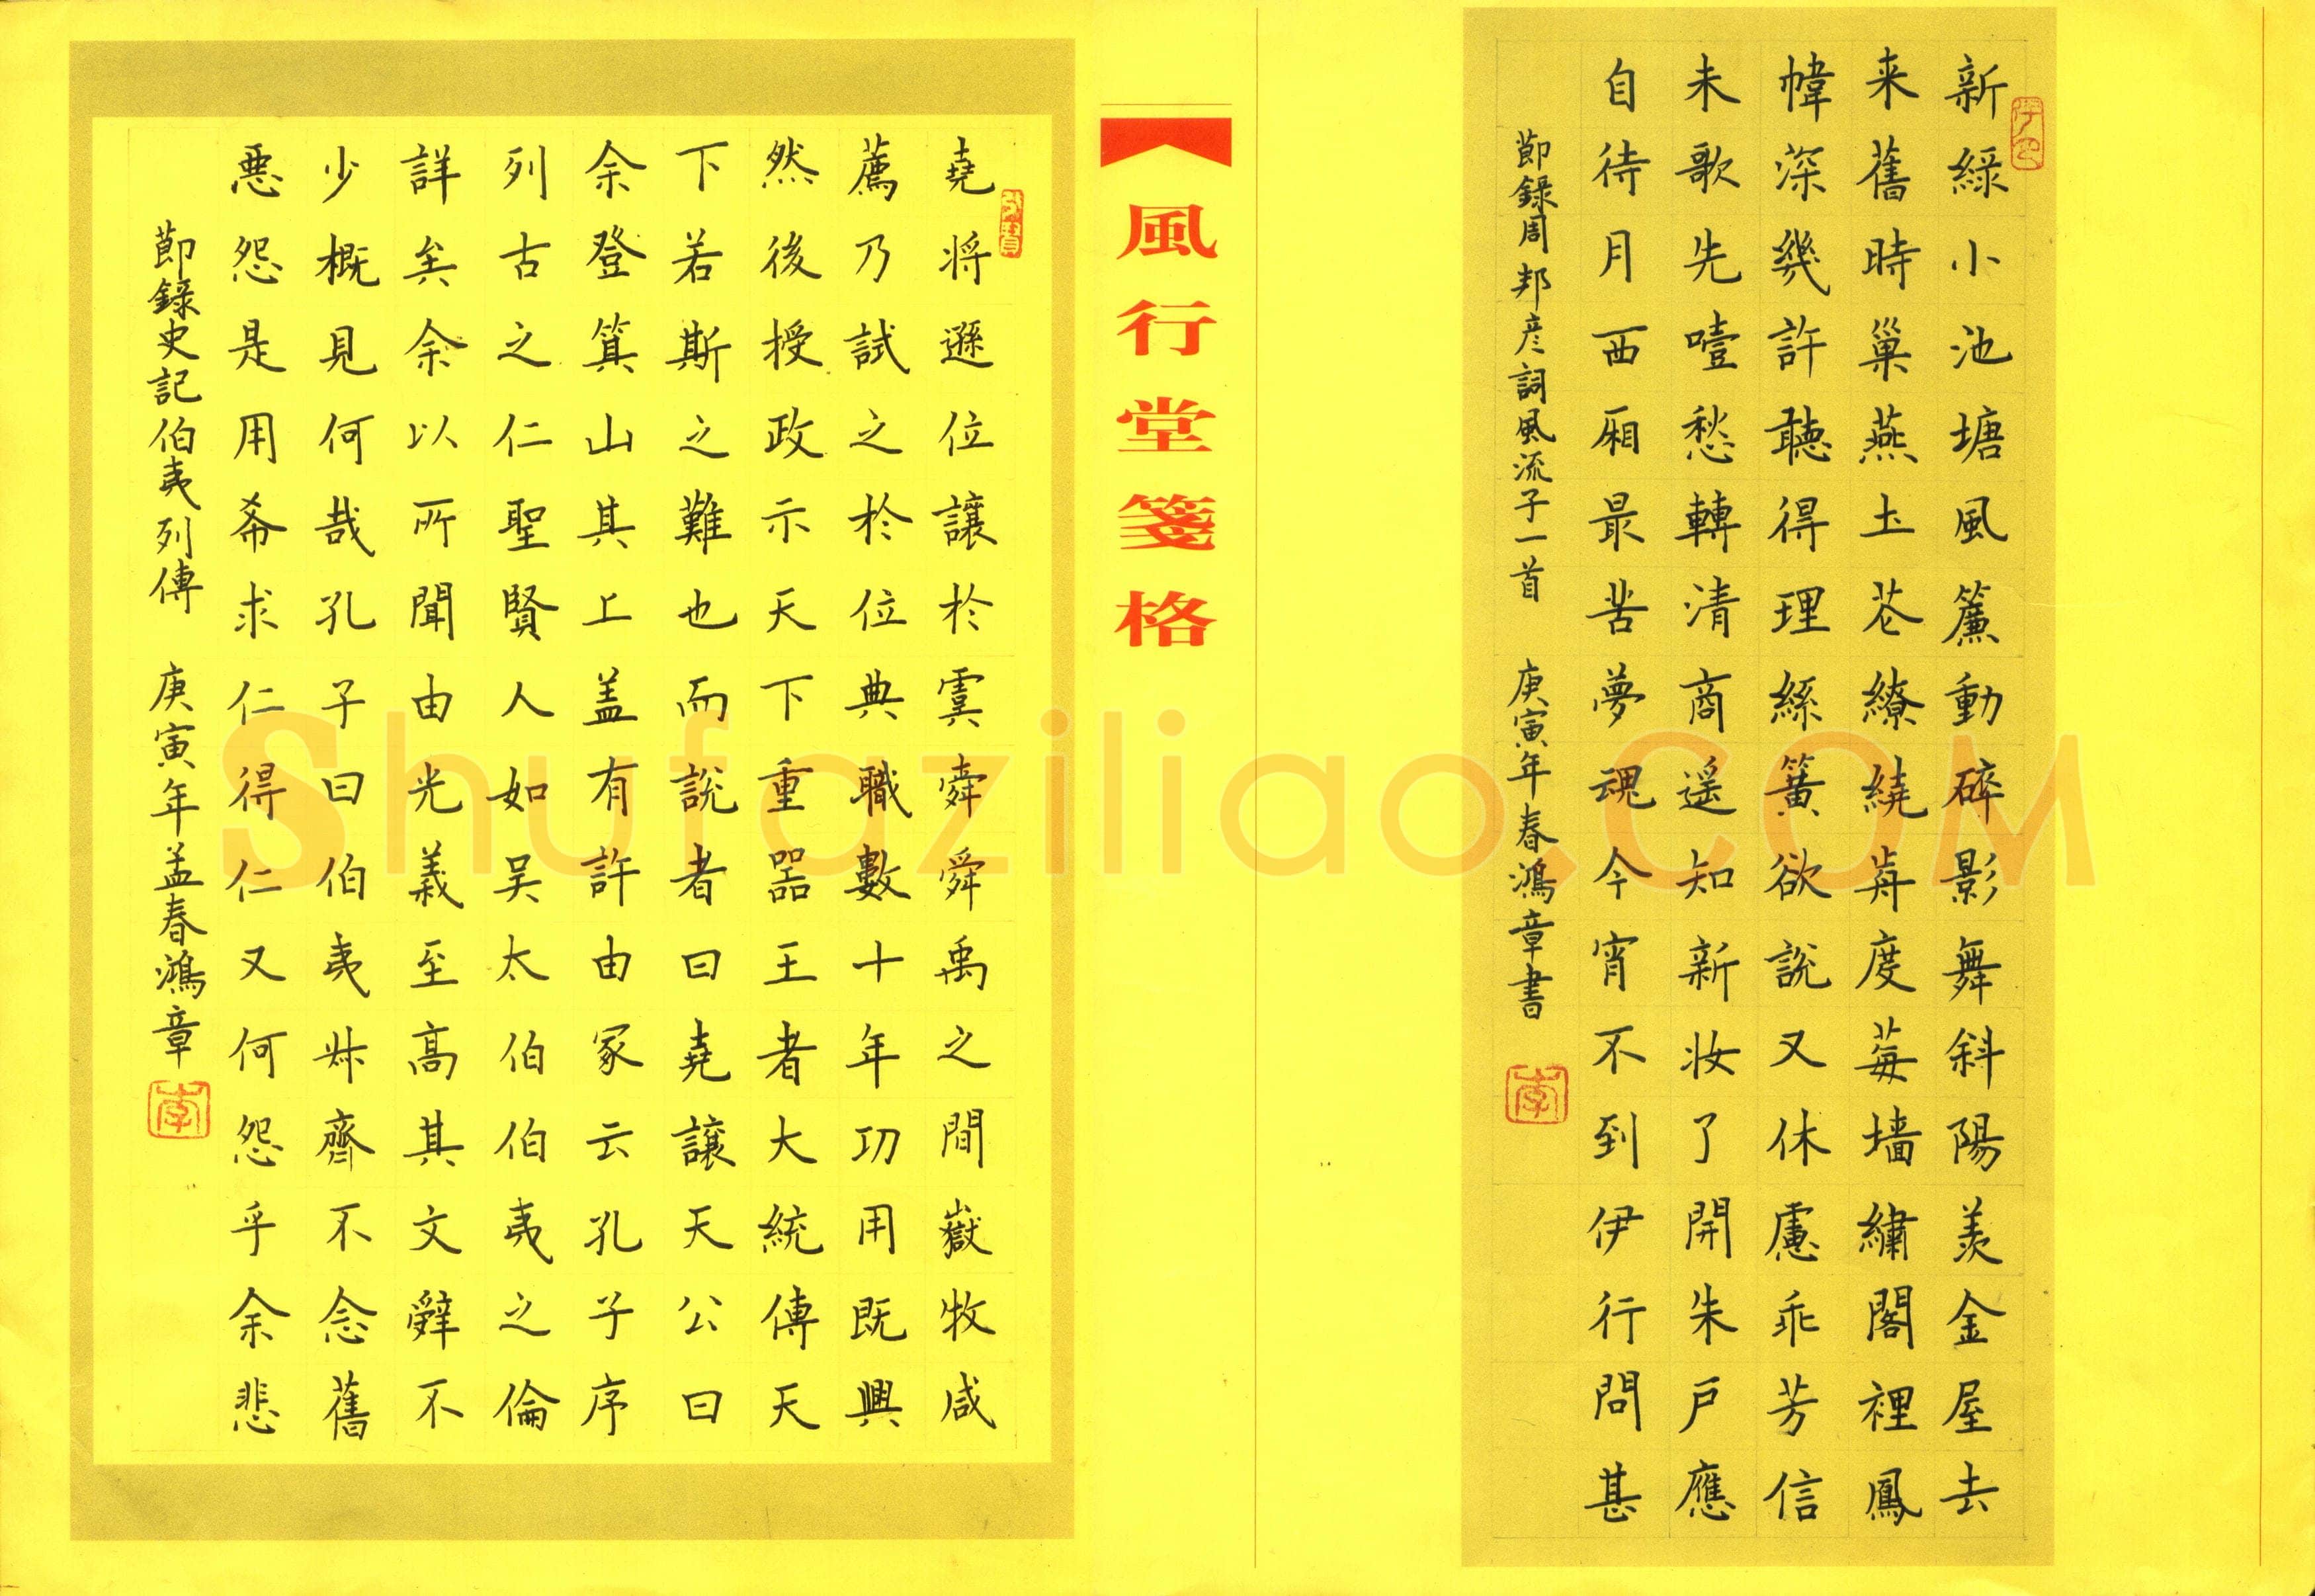 新綠小池塘風簾動碎影舞斜陽羨金屋去
来舊時巢燕土花繚繞歬度莓墙繡閣裡鳳
幃深幾許聽得理絲簧欲說又休慮乖芳信
未歌先噎愁轉清商遥知新妆了開朱戶應
自待月西廂最苦夢魂今宵不到伊行問甚
節錄周邦彦詞風流子一首 庚寅年春鴻章書
李
風行堂箋格
堯将遜位讓於虞舜舜禹之間嶽牧咸
薦乃試之於位典職數十年功用既興
然後授政示天下重器王者大統傳天
下若斯之難也而說者曰堯讓天公曰
余登箕山其上盖有許由冢云孔子序
列古之仁聖賢人如吴太伯伯夷之倫
詳矣余以所聞由光義至高其文辭不
少概見何哉孔子曰伯夷叔齊不念舊
惡怨是用希求仁得仁又何怨乎余悲
節錄史記伯夷列傳 庚寅年孟春鴻章
李
Shufaziliao.COM